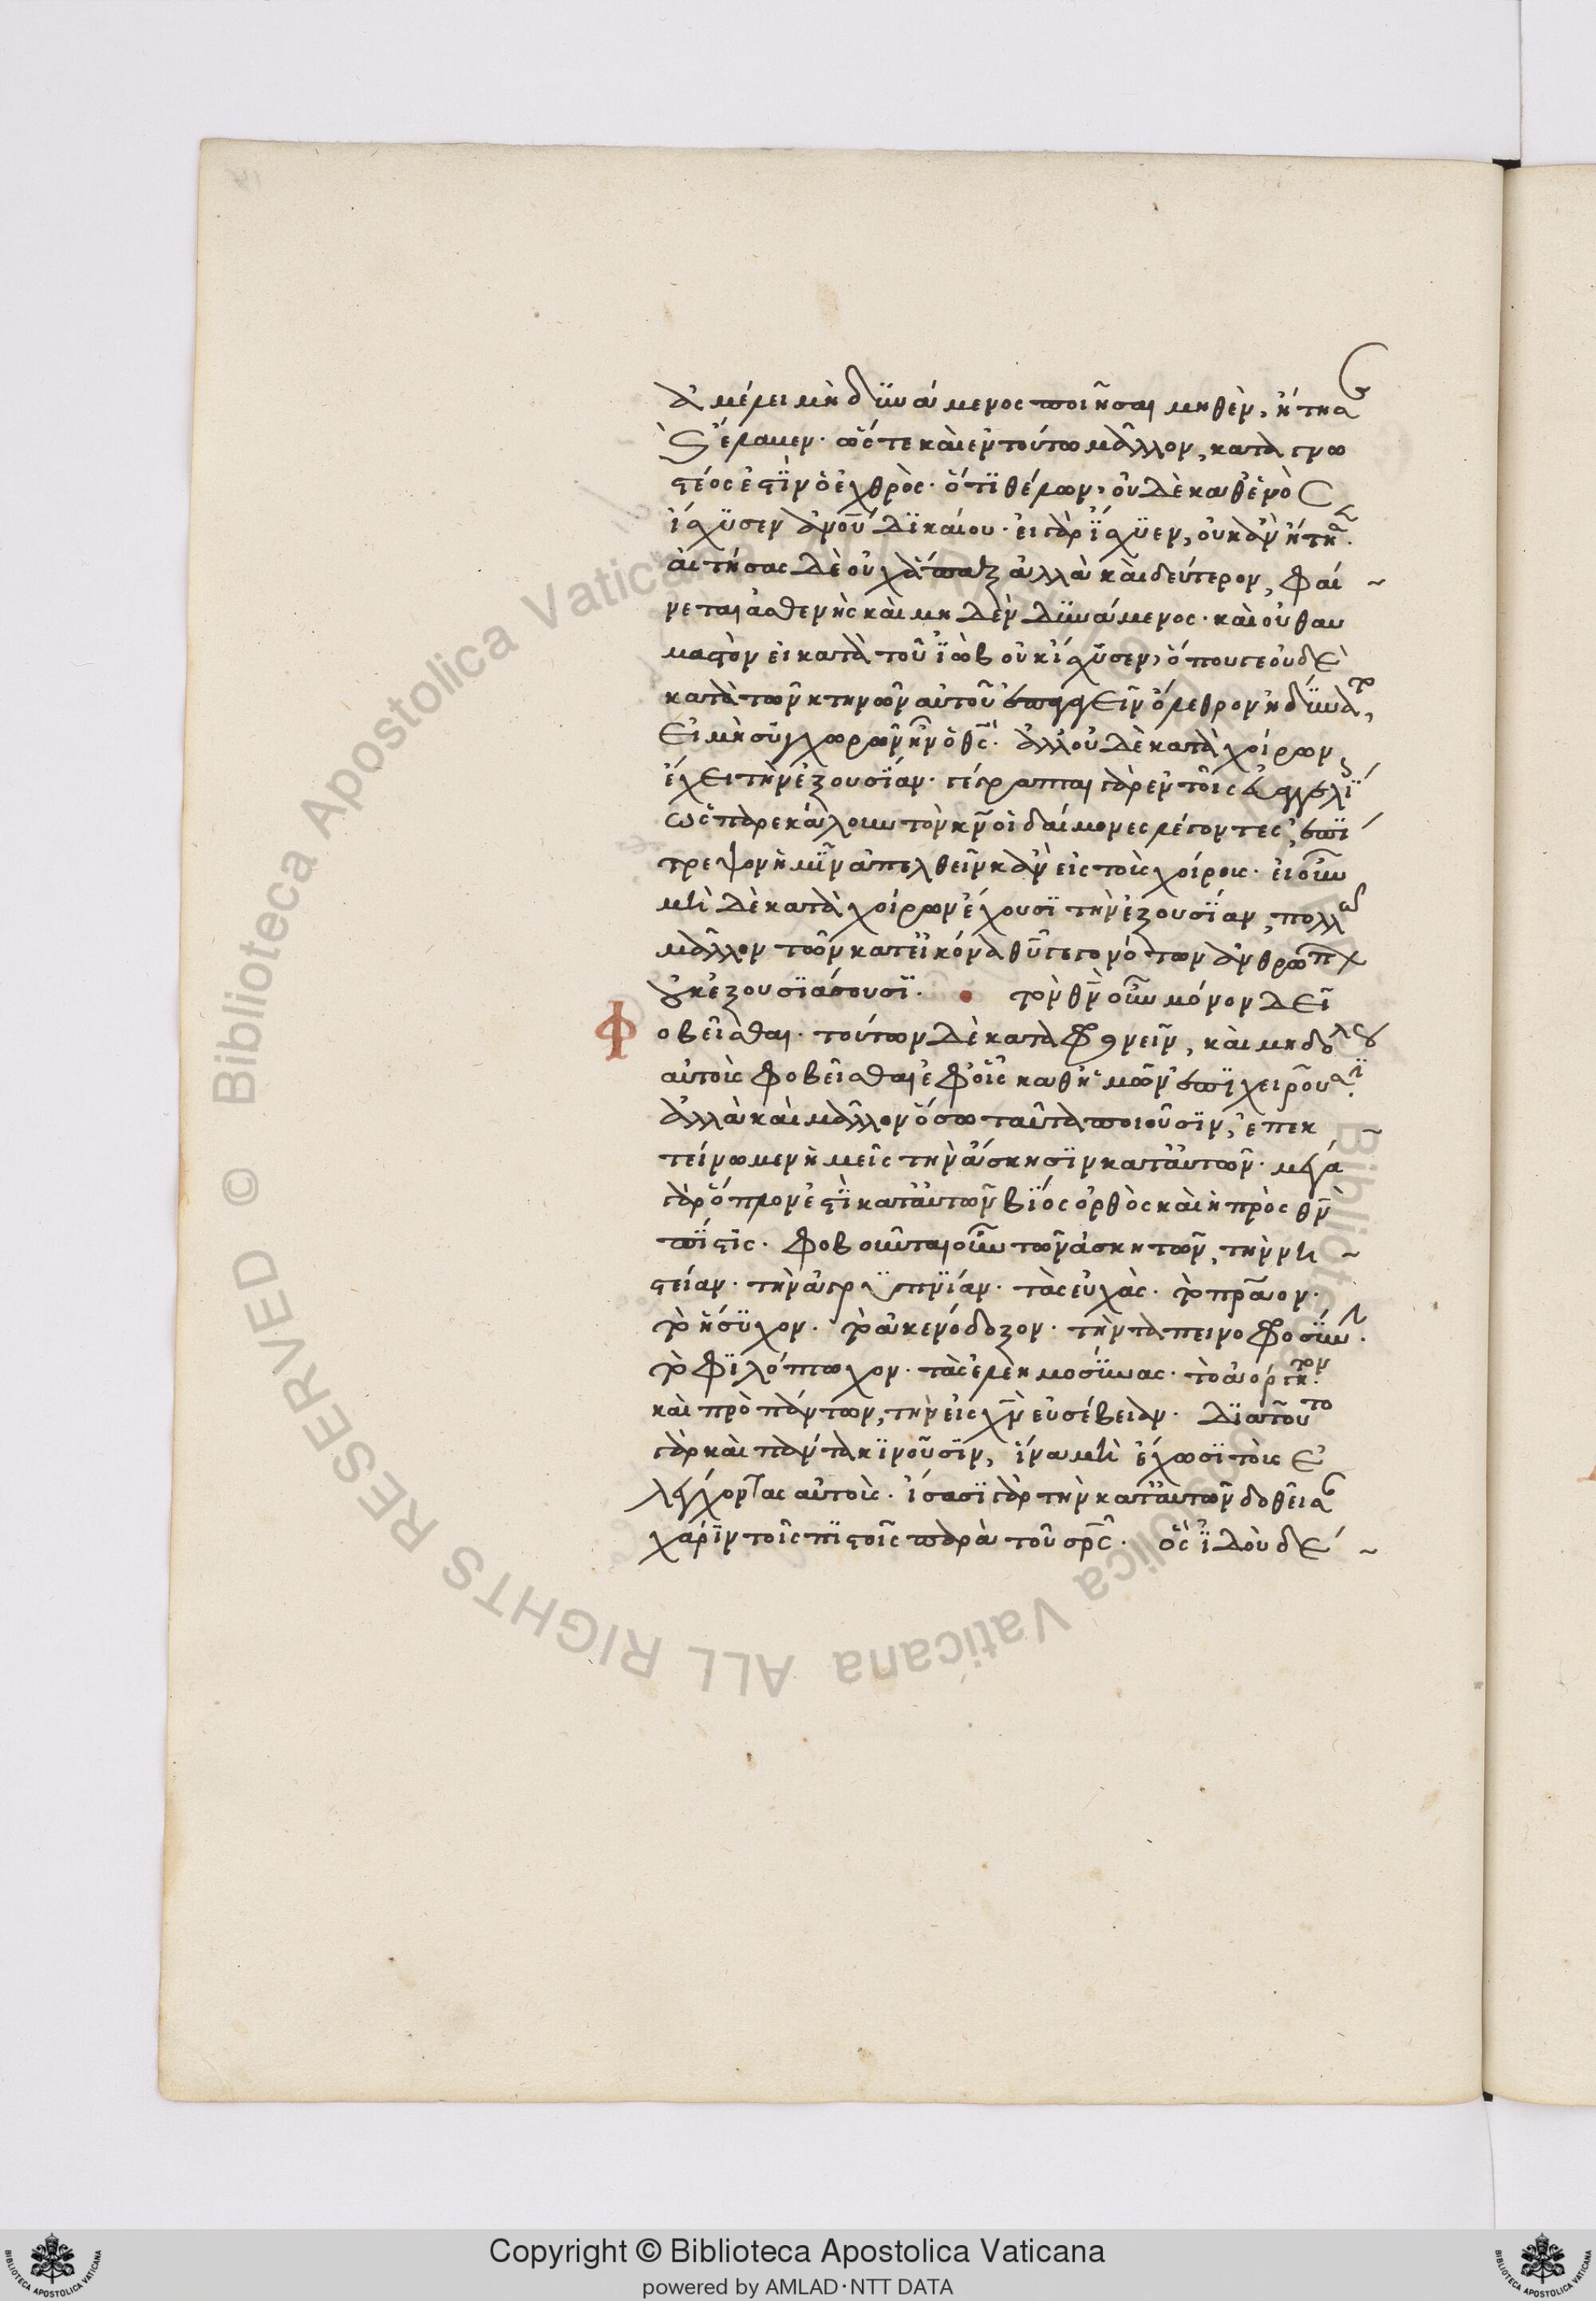 ἀμέλει μὴ δυνάμενος ποιῆσαι μηθὲν, ἠτησα
ἐλαμεν· ὥστε καὶ ἐν τούτω μᾶλλον, καταγνω
στέος ἐστὶν ὁ ἐχθρὸς· ὅτι θέλων, οὐδὲ καθενὸς
ἴσχυσεν ἀνοῦ δικαίου· εἰ γὰρ ἴσχυεν, οὐκ ἂν ἤτησ·
αἰτήσας δὲ οὐχ ἅπαξ ἀλλὰ καὶ δεύτερον, φαί
νεται ἀσθενὴς καὶ μηδὲν δυνάμενος· καὶ οὐ θαυ
μαστὸν εἰ κατὰ τοῦ ϊὼβ οὐκ ἴσχυσεν, ὅπουγε οὐδὲ
κατὰ τῶν κτηνῶν αὐτοῦ ὄλεθρον ἠδύνατο,
εἰ μὴ συγχωρῶν ἦν ὁ θς̅· ἀλλ' οὐδὲ κατὰ χοίρων
ἔχει τὴν ἐξουσίαν· γέγραπται γὰρ ἐν τοῖς εὐαγγελί
ὡς παρεκάλουν τὸν κν̅ οἱ δαίμονες λέγοντες, ἐπί
τρεψον ἡμῖν ἀπελθεῖν κἂν εἰς τοὺς χοίρους· εἰ οὖν
μὴ δὲ κατὰ χοίρων ἔχουσι τὴν ἐξουσίαν, πολλῶ
μᾶλλον τῶν κατ' εἰκόνα θυ̅ γεγονότων ἀνθρώπων
οὐκ ἐξουσιάσουσι· τὸν θν̅ οὖν μόνον δεῖ
Φοβεῖσθαι· τούτων δὲ καταφρονεῖν, καὶ μηδόλου
αὐτοὺς φοβεῖσθαι ἐφ' οἷς καθ' ἡμῶν ἐπιχειροῦσι·
ἀλλὰ καὶ μᾶλλον ὅσω ταῦτα ποιοῦσιν, ἐπεκ
τείνωμεν ἡμεῖς τὴν ἄσκησιν κατ' αὐτῶν· μέγα
γὰρ ὅπλον ἐστὶ κατ' αὐτῶν βίος ὀρθὸς καὶ ἡ πρὸς θν̅
πίστις· φοβοῦνται οὖν τῶν ἀσκητῶν, τὴν νη
στείαν· τὴν ἀγρυπνίαν· τὰς εὐχὰς· τὸ πρᾶον·
τὸ ἥσυχον· τὸ ἀκενόδοξον· τὴν ταπεινοφροσύνην·
τὸ φιλόπτωχον· τὰς ἐλεημοσύνας· τὸ ἀόργητον·
καὶ πρὸ πάντων, τὴν εἰς χν̅ εὐσέβειαν· διατοῦτο
γὰρ καὶ πάντα κινοῦσιν, ἵνα μὴ ἔχωσι τοὺς ἐ
λέγχοντας αὐτοὺς· ἴσασι γὰρ τὴν κατ' αὐτῶν δοθεῖσαν
χάριν τοῖς πιστοῖς παρὰ τοῦ σρ̅ς· ὃς ἰδοὺ δέ